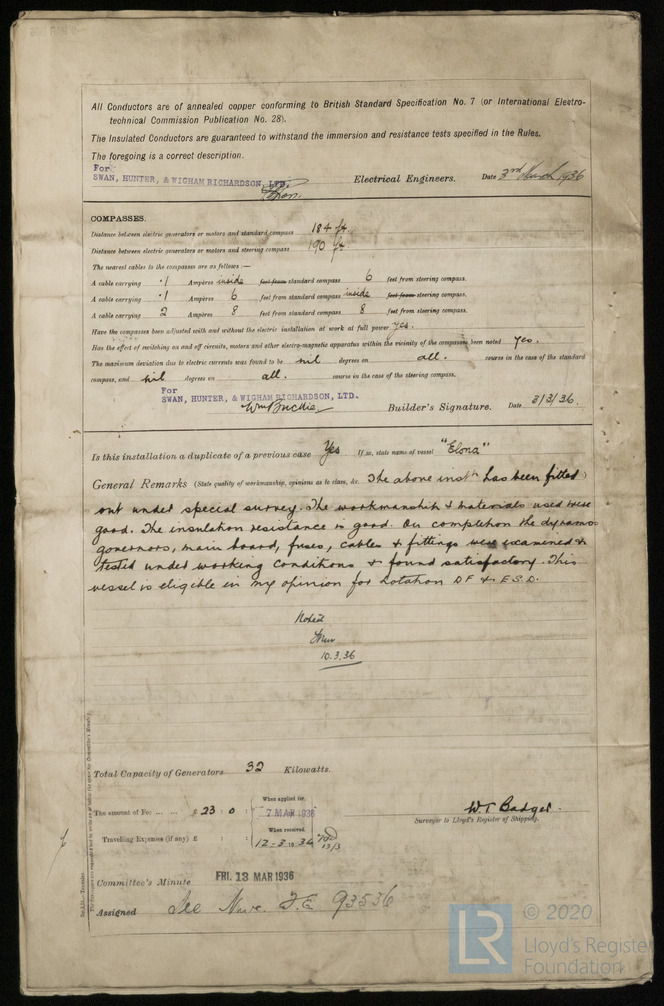 All Conductors are of annealed copper conforming to British Standard Specification No. 7 (or International Electro-
technical Commission Publication No. 28).
The Insulated Conductors are guaranteed to withstand the immersion and resistance tests specified in the Rules.
The foregoing is a correct description.
For
SWAN, HUNTER, & WIGHAM RICHARDSON, LTD. Electrical Engineers. Date 3rd March 1936
COMPASSES.
Distance between electric generators or motors and standard compass 184 ft.
Distance between electric generators or motors and steering compass 190 ft
The nearest cables to the compasses are as follows:—
A cable carrying .1 Ampères inside feet from standard compass 6 feet from steering compass.
A cable carrying .1 Ampères 6 feet from standard compass inside feet from steering compass.
A cable carrying 2 Ampères 8 feet from standard compass 8 feet from steering compass.
Have the compasses been adjusted with and without the electric installation at work at full power yes.
Has the effect of switching on and off circuits, motors and other electro-magnetic apparatus within the vicinity of the compasses been noted yes.
The maximum deviation due to electric currents was found to be nil degrees on all. course in the case of the standard
compass, and nil degrees on all. course in the case of the steering compass.
For
SWAN, HUNTER, & WIGHAM RICHARDSON, LTD.
Builder's Signature. Date 3/3/36.
Is this installation a duplicate of a previous case Yes If so, state name of vessel "Elona"
General Remarks (State quality of workmanship, opinions as to class, &c. The above instn has been fitted
out under special survey. The workmanship & materials used were
good. The insulation resistance is good. On completion the dynamos
governors, main board, fuses, cables & fittings were examined &
tested under working conditions & found satisfactory. This
vessel is eligible in my opinion for notation DF & E.S.D.
Noted
10.3.36
Total Capacity of Generators 32 Kilowatts.
The amount of Fee ... ... £ 23 : 0 : When applied for, 7 MAR 1936
Travelling Expenses (if any) £ : : When received, 12-3-1936
13/3
W T Badger.
Surveyor to Lloyd's Register of Shipping.
Committee's Minute FRI. 13 MAR 1936
Assigned See Nwc. F.E. 93536
LR
© 2020
Lloyd's Register
Foundation